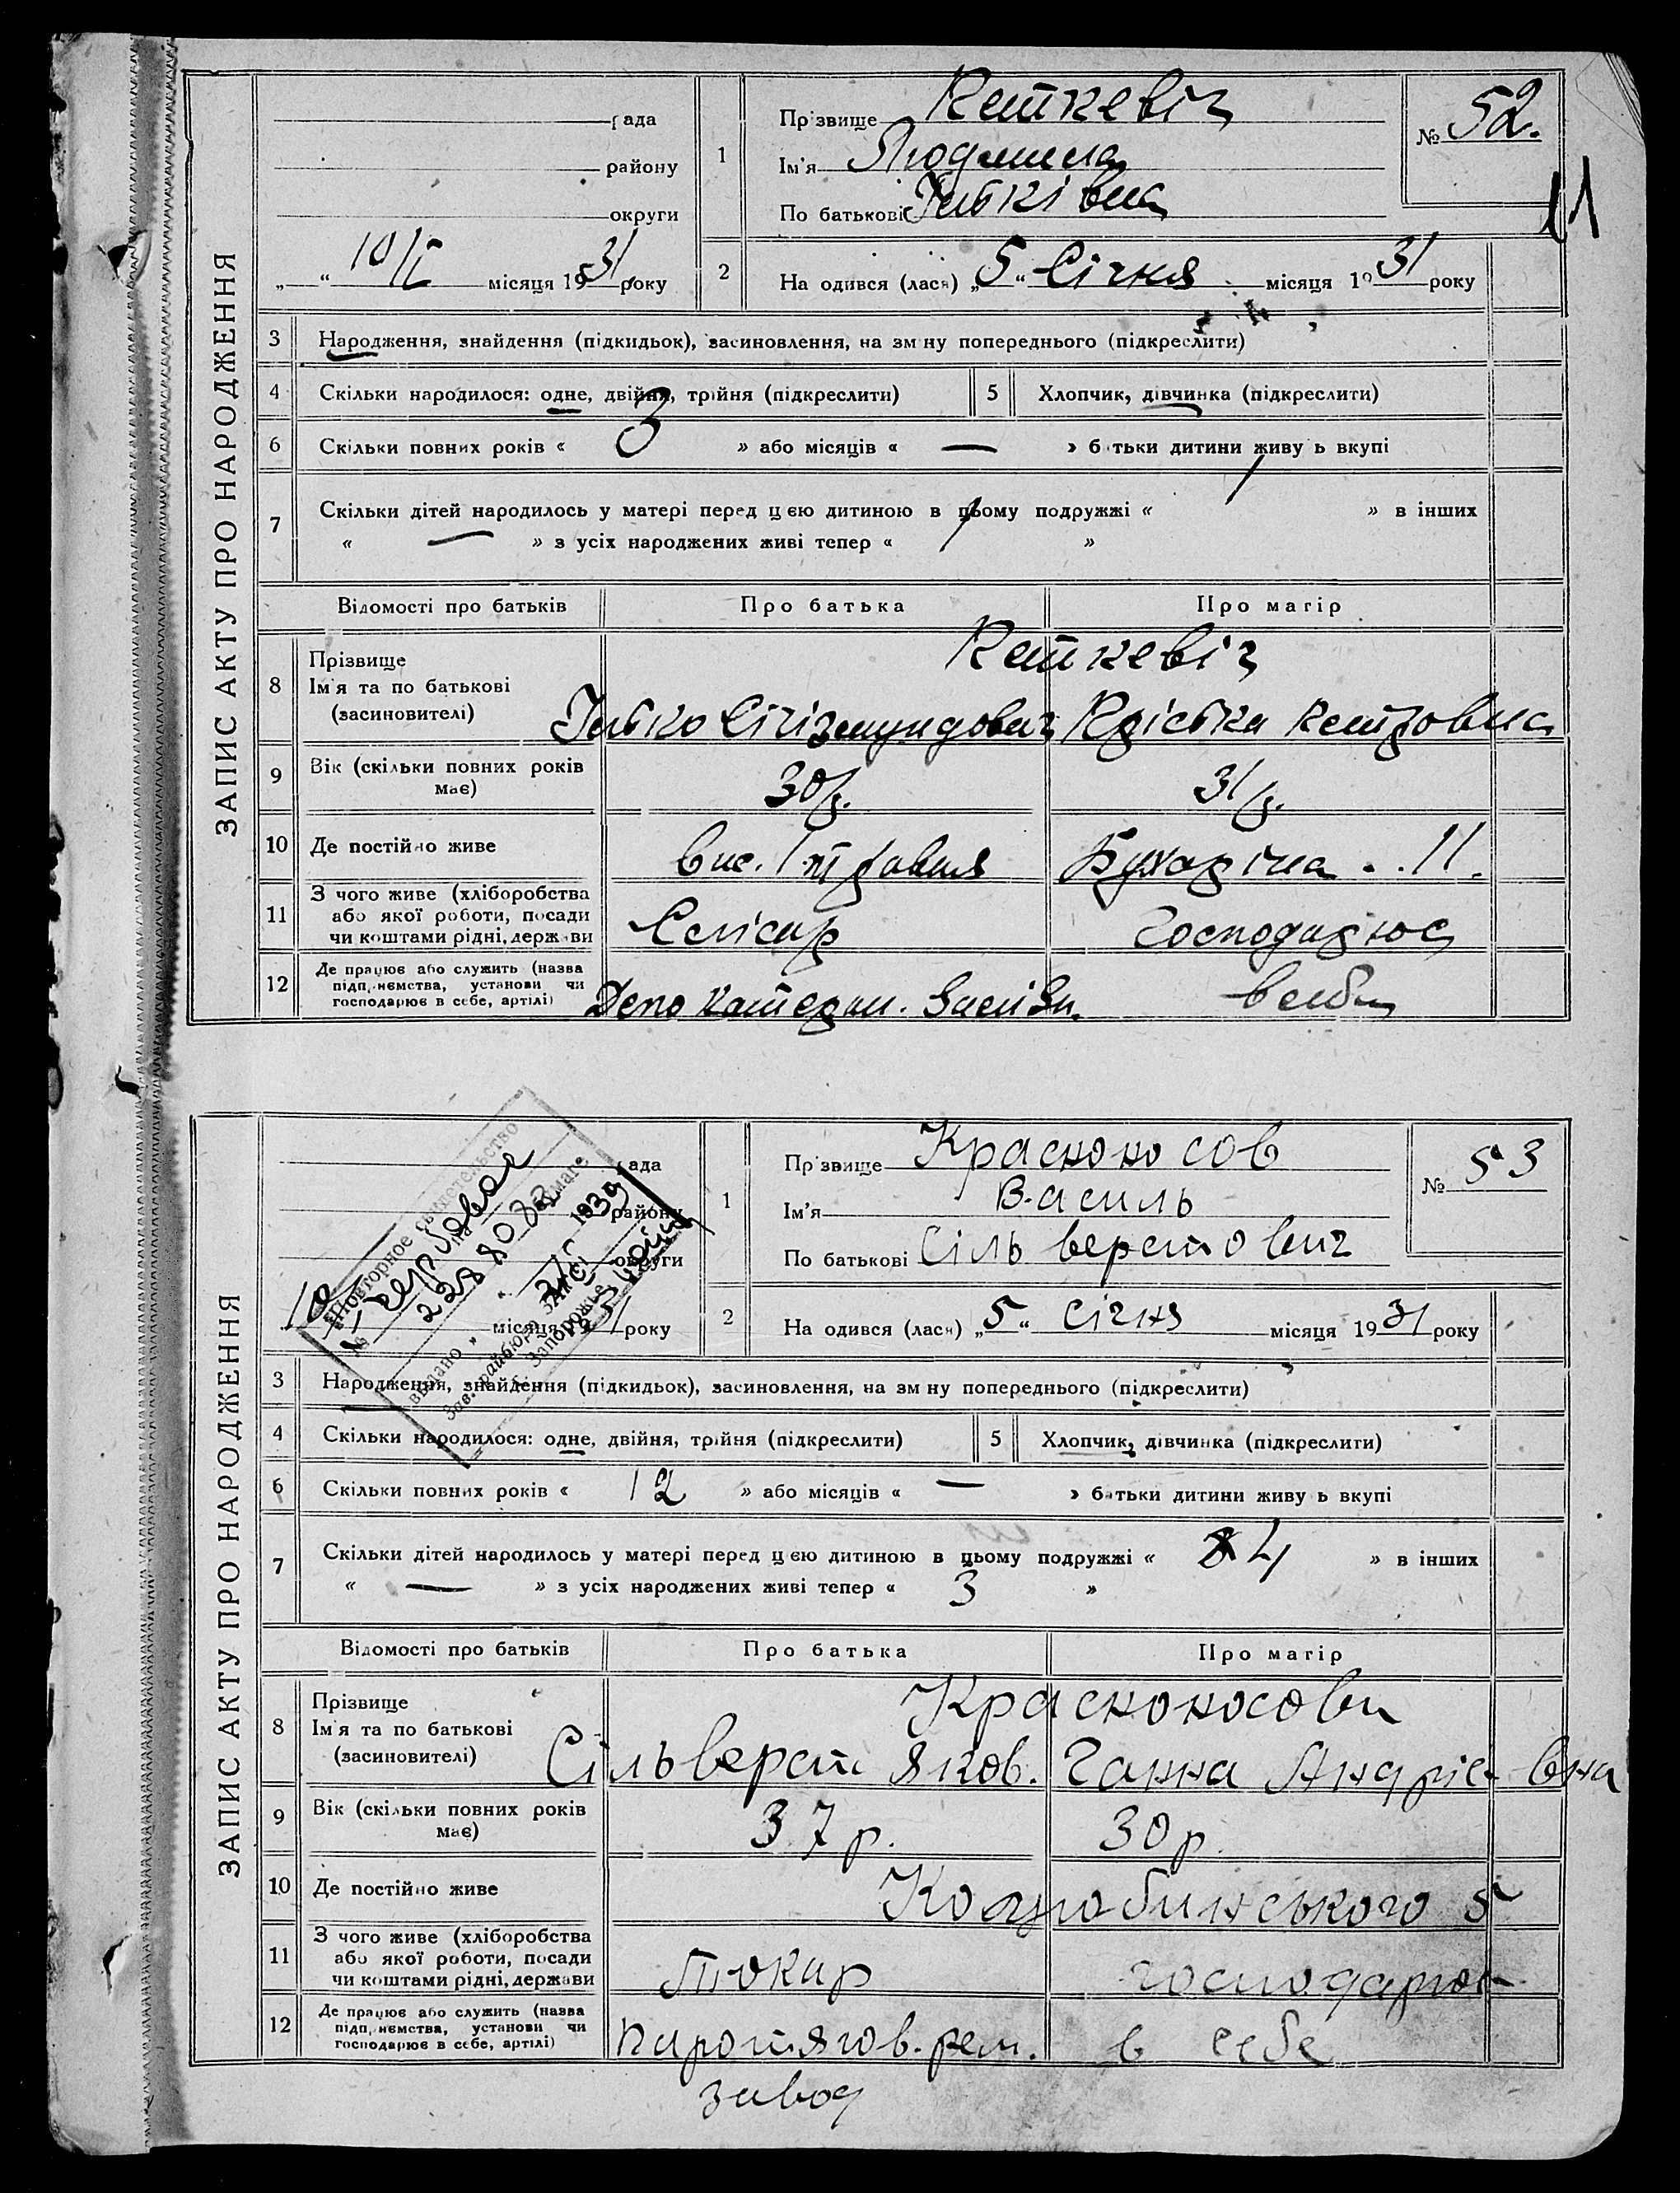 ЗАПИС АКТУ ПРО НАРОДЖЕННЯ
рада
району
округи
„ “ 10/I місяця 1931 року
1
Прізвище Кеткевіч
Ім'я Людмила
По батькові
№ 52.
11
2
На одився (лася) „5“ Січня місяця 1931 року
3 Народження, знайдення (підкидьок), засиновлення, на зм ну попереднього (підкреслити)
4 Скільки народилося: одне, двійня, трійня (підкреслити)
5 Хлопчик, дівчинка (підкреслити)
6 Скільки повних років « 3 » або місяців « — » б тьки дитини живу ь вкупі
7 Скільки дітей народилось у матері перед цею дитиною в цьому подружжі « 1 » в інших
« — » з усіх народжених живі тепер « 1 »
Відомості про батьків Про батька Про матір
8 Прізвище
Ім'я та по батькові
(засиновителі)
Кеткевіч
Сігізмундович
9 Вік (скільки повних років
має)
30 р. 31 р.
10 Де постійно живе
вис. 1 травня Бухаріна 11.
11 З чого живе (хліборобства
або якої роботи, посади
чи коштами рідні, держави
Слісар Господарює
12 Де працює або служить (назва
підприємства, установи чи
господарює в себе, артілі)
Депо Катерин. Залізн. в себе
ЗАПИС АКТУ ПРО НАРОДЖЕННЯ
рада
району
округи
місяця 1931 року
Повторное свидетельство
на гербовой бумаге
№ 228808
выдано „ “ 1939
Зав. райбюро ЗАГС
г. Запорожье
1
Прізвище Красноносов
Ім'я Василь
По батькові Сільверстович
№ 53
2
На одився (лася) „5“ січня місяця 1931 року
3 Народження, знайдення (підкидьок), засиновлення, на зм ну попереднього (підкреслити)
4 Скільки народилося: одне, двійня, трійня (підкреслити)
5 Хлопчик, дівчинка (підкреслити)
6 Скільки повних років « 12 » або місяців « — » батьки дитини живу ь вкупі
7 Скільки дітей народилось у матері перед цею дитиною в цьому подружжі « 4 » в інших
« — » з усіх народжених живі тепер « 3 »
Відомості про батьків Про батька Про матір
8 Прізвище
Ім'я та по батькові
(засиновителі)
Красноносови
Сільверст Яков. Ганна Андріевна
9 Вік (скільки повних років
має)
37 р. 30 р.
10 Де постійно живе
Коцюбинського 5
11 З чого живе (хліборобства
або якої роботи, посади
чи коштами рідні, держави
Токар господарює
12 Де працює або служить (назва
підприємства, установи чи
господарює в себе, артілі)
Паротягов. рем. в себе
завод